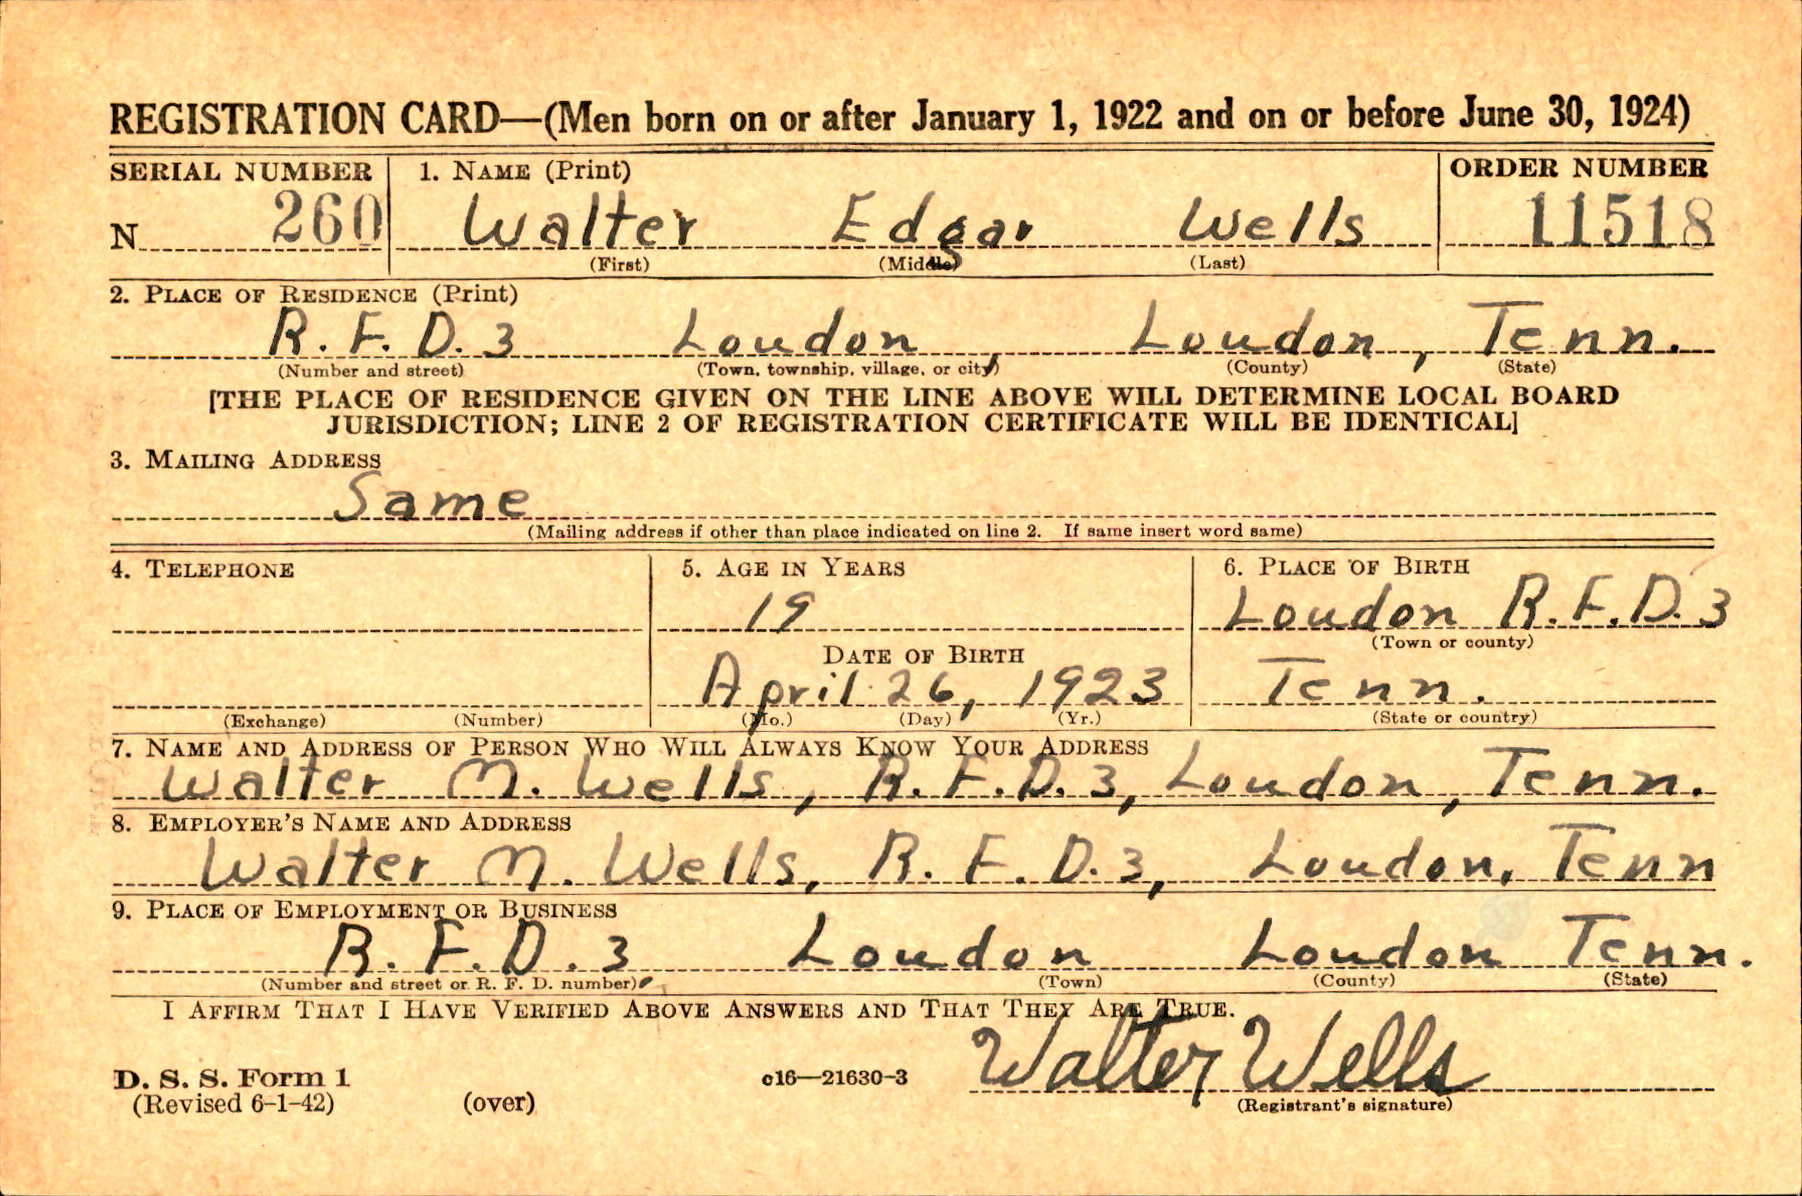 REGISTRATION CARD—(Men born on or after January 1, 1922 and on or before June 30, 1924)
SERIAL NUMBER 1. NAME (Print) ORDER NUMBER
N 260 Walter Edgar Wells 11518
(First) (Middle) (Last)
2. PLACE OF RESIDENCE (Print)
R. F. D. 3 Loudon, Loudon, Tenn.
(Number and street) (Town, township, village, or city) (County) (State)
[THE PLACE OF RESIDENCE GIVEN ON THE LINE ABOVE WILL DETERMINE LOCAL BOARD
JURISDICTION; LINE 2 OF REGISTRATION CERTIFICATE WILL BE IDENTICAL]
3. MAILING ADDRESS
Same
(Mailing address if other than place indicated on line 2. If same insert word same)
4. TELEPHONE 5. AGE IN YEARS 6. PLACE OF BIRTH
19 Loudon R.F.D. 3
(Town or county)
DATE OF BIRTH
April 26, 1923 Tenn.
(Exchange) (Number) (Mo.) (Day) (Yr.) (State or country)
7. NAME AND ADDRESS OF PERSON WHO WILL ALWAYS KNOW YOUR ADDRESS
Walter M. Wells, R. F. D. 3, Loudon, Tenn.
8. EMPLOYER'S NAME AND ADDRESS
Walter M. Wells, R. F. D. 3, Loudon, Tenn
9. PLACE OF EMPLOYMENT OR BUSINESS
R. F. D. 3, Loudon Loudon Tenn.
(Number and street or R. F. D. number) (Town) (County) (State)
I AFFIRM THAT I HAVE VERIFIED ABOVE ANSWERS AND THAT THEY ARE TRUE.
D. S. S. Form 1 c16—21630-3 Walter Wells
(Revised 6-1-42) (over) (Registrant's signature)